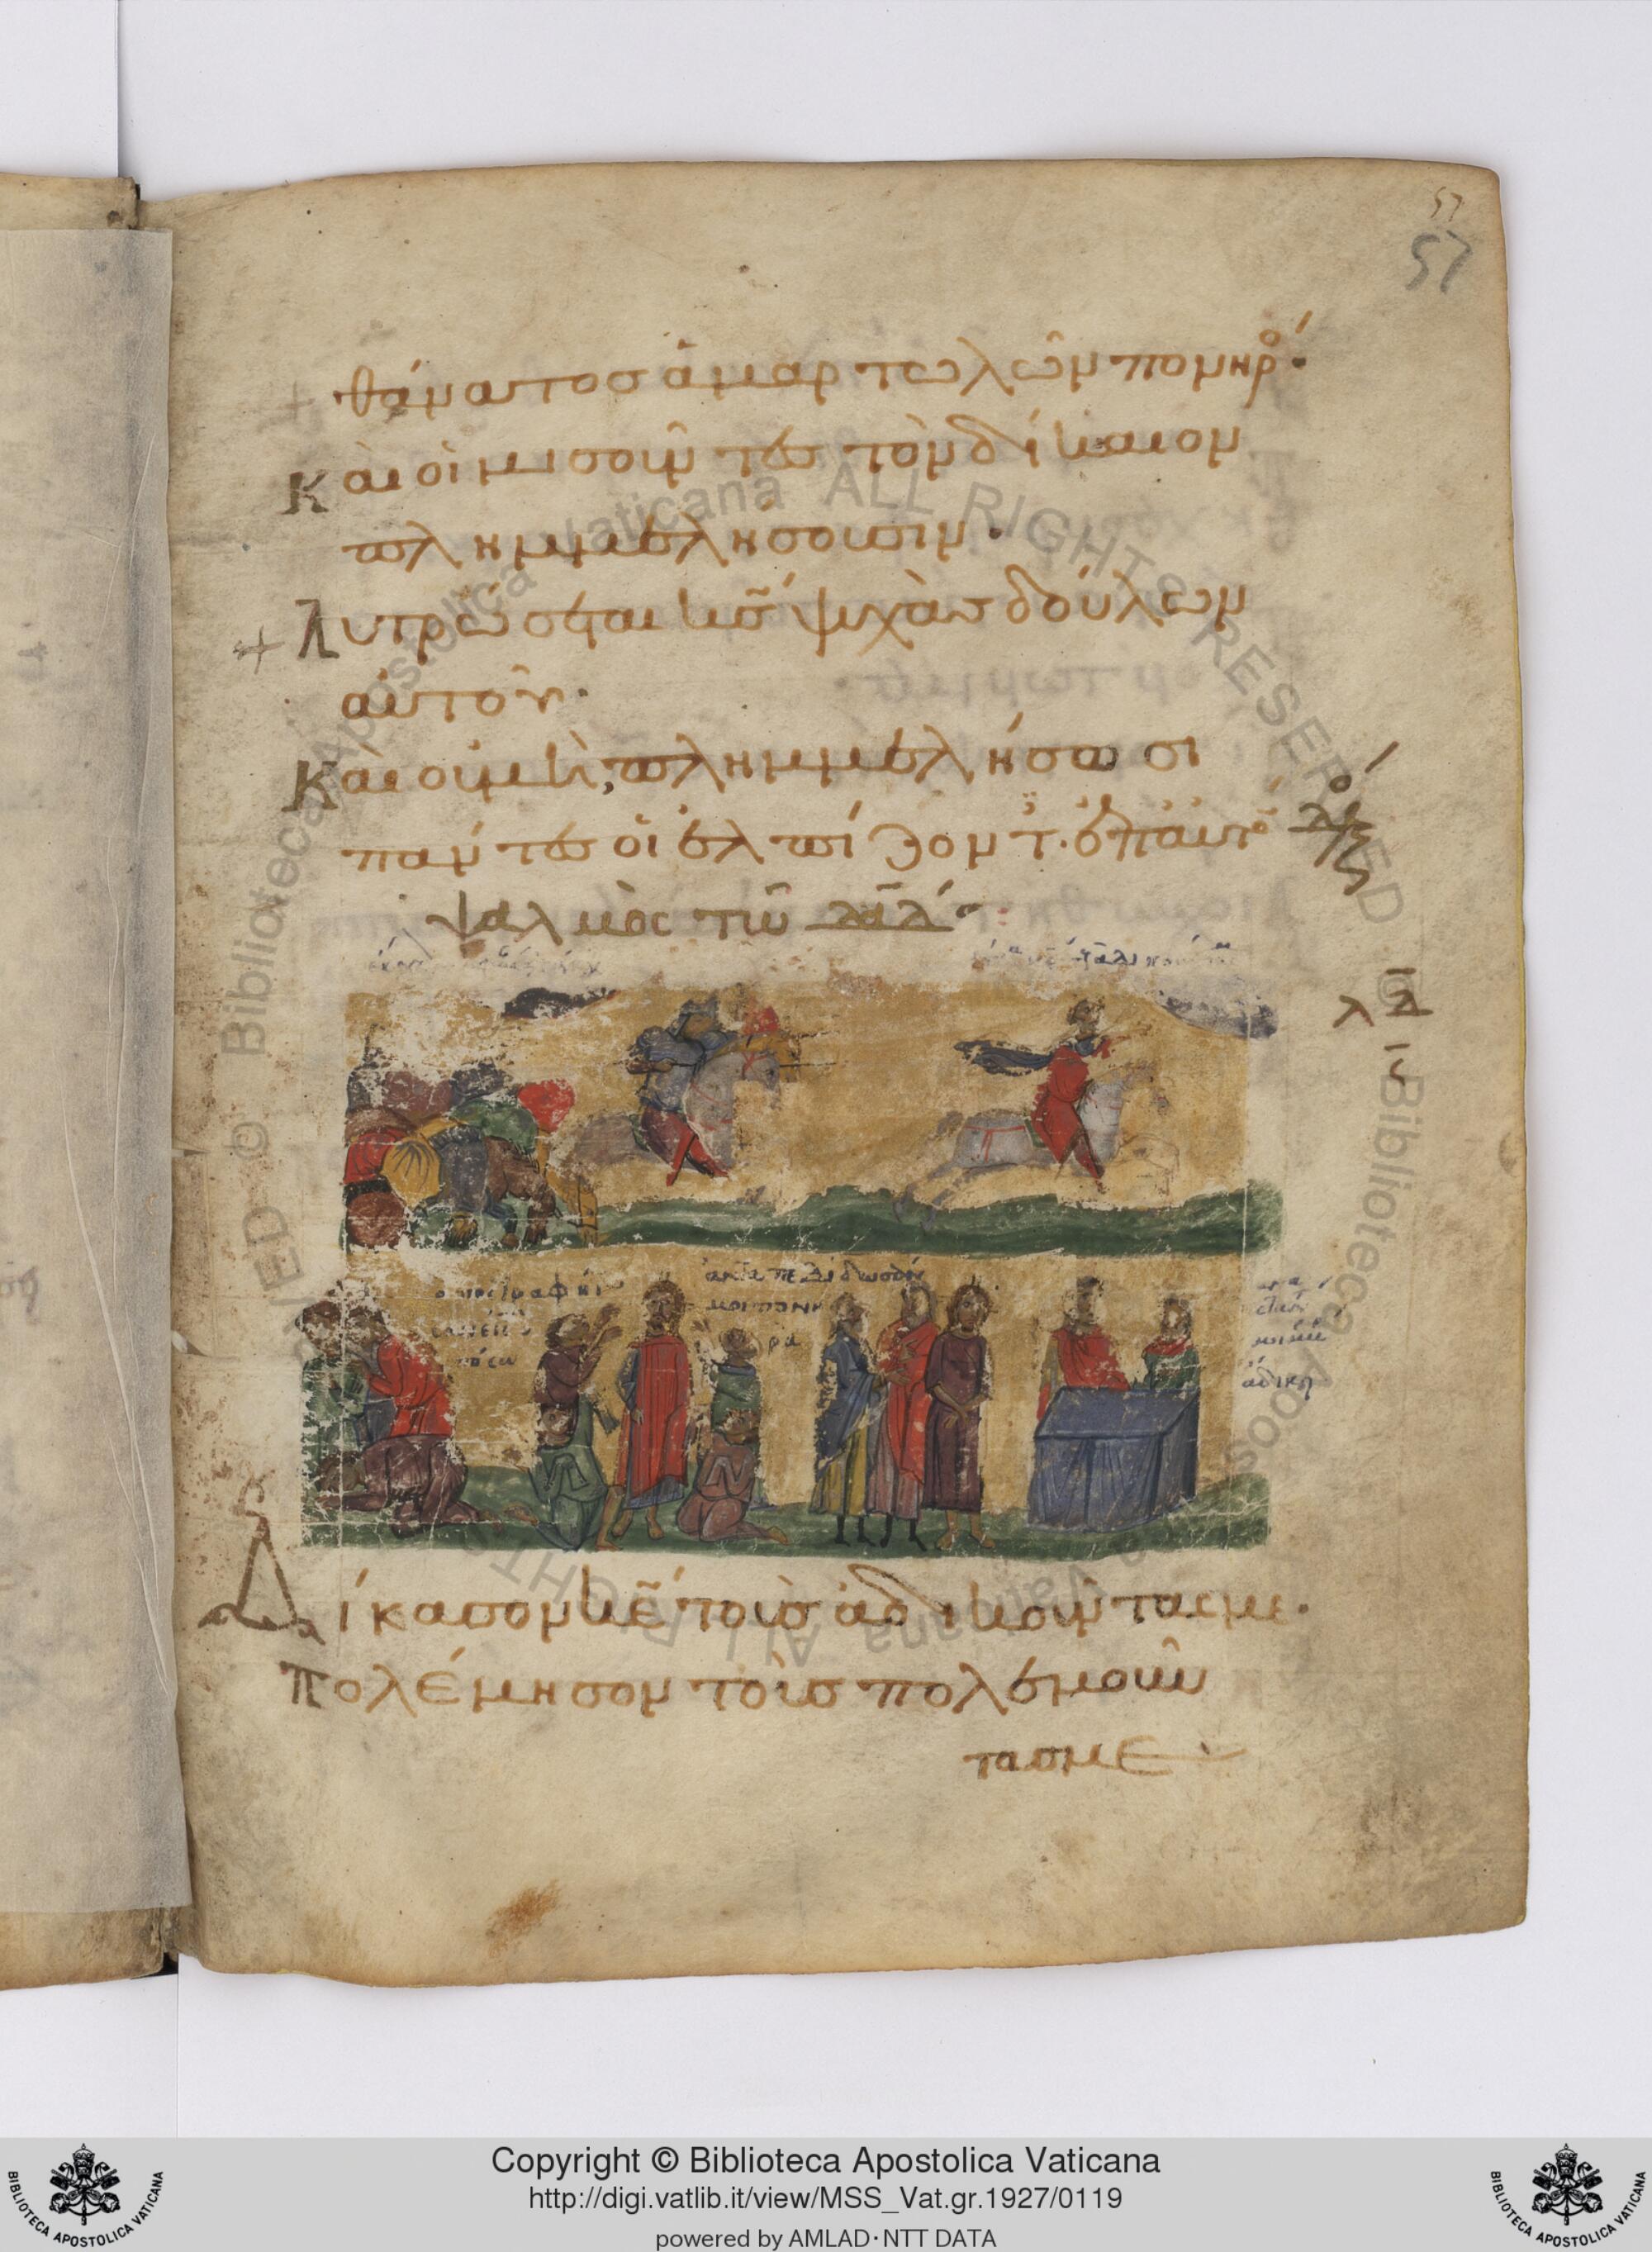 57
57
θάνατος ἁμαρτωλῶν πονηρό
Καὶ οἱ μισοῦντες τὸν δίκαιον
πλημμελήσουσιν.
Λυτρώσεται κς ψυχὰς δούλων
αὐτοῦ.
Καὶ οὐ μὴ πλημμελήσωσι
πάντες οἱ ἐλπίζοντ. ἐπ αὐτό
ψαλμὸς τῶ δαδ
λδ
ἀποστραφήτω
ἀνταπεδίδωσάν
μοι πονη
ρα
ἄδικοι
Δίκασον κε τοὺς ἀδικοῦντας με.
Πολέμησον τοὺς πολεμοῦν
τας με
Biblioteca Apostolica Vaticana ALL RIGHTS RESERVED ©
Copyright © Biblioteca Apostolica Vaticana
http://digi.vatlib.it/view/MSS_Vat.gr.1927/0119
powered by AMLAD·NTT DATA
BIBLIOTECA APOSTOLICA VATICANA
BIBLIOTECA APOSTOLICA VATICANA